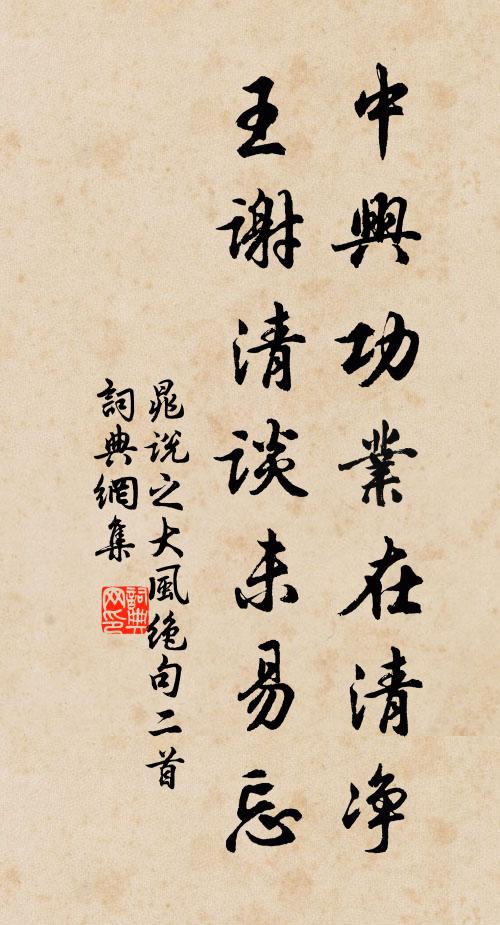 中興功業在清净
王謝清談未易忘
晁説之大風绝句二首
詞典網集
詞典网印